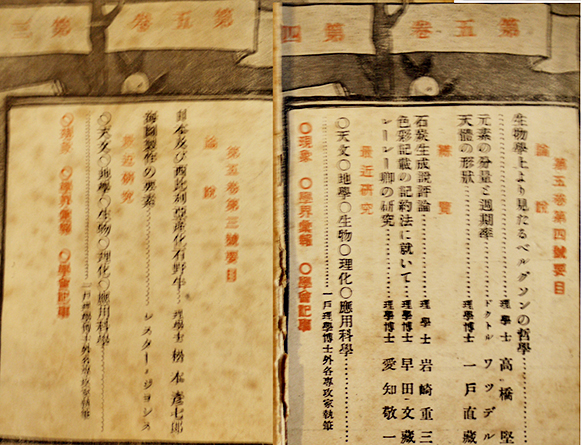 第五卷 第四
第五卷第四號要目
論說
生物學上より見たるベルグソンの哲學……理學士 高橋堅
元素の分量と週期率……ドクトル ワツデル
天體の形狀……理學博士 一戶直藏
石炭生成說評論……理學士 岩崎重三
色彩記載の記約法に就いて……理學博士 早田文藏
レーレー卿の硏究……理學博士 愛知敬一
最近硏究
〇天文〇地學〇生物〇理化〇應用科學……
一戶理學博士外各專攻家執筆
〇現象 〇學界彙報 〇學會記事
第五卷 第三
第五卷第三號要目
論說
日本及び西比利亞產化石野牛……理學士 松本彥七郎
海圖製作の要素……レスター・ジョンス
最近硏究
〇天文〇地學〇生物〇理化〇應用科學……
一戶理學博士外各專攻家執筆
〇現象 〇學界彙報 〇學會記事